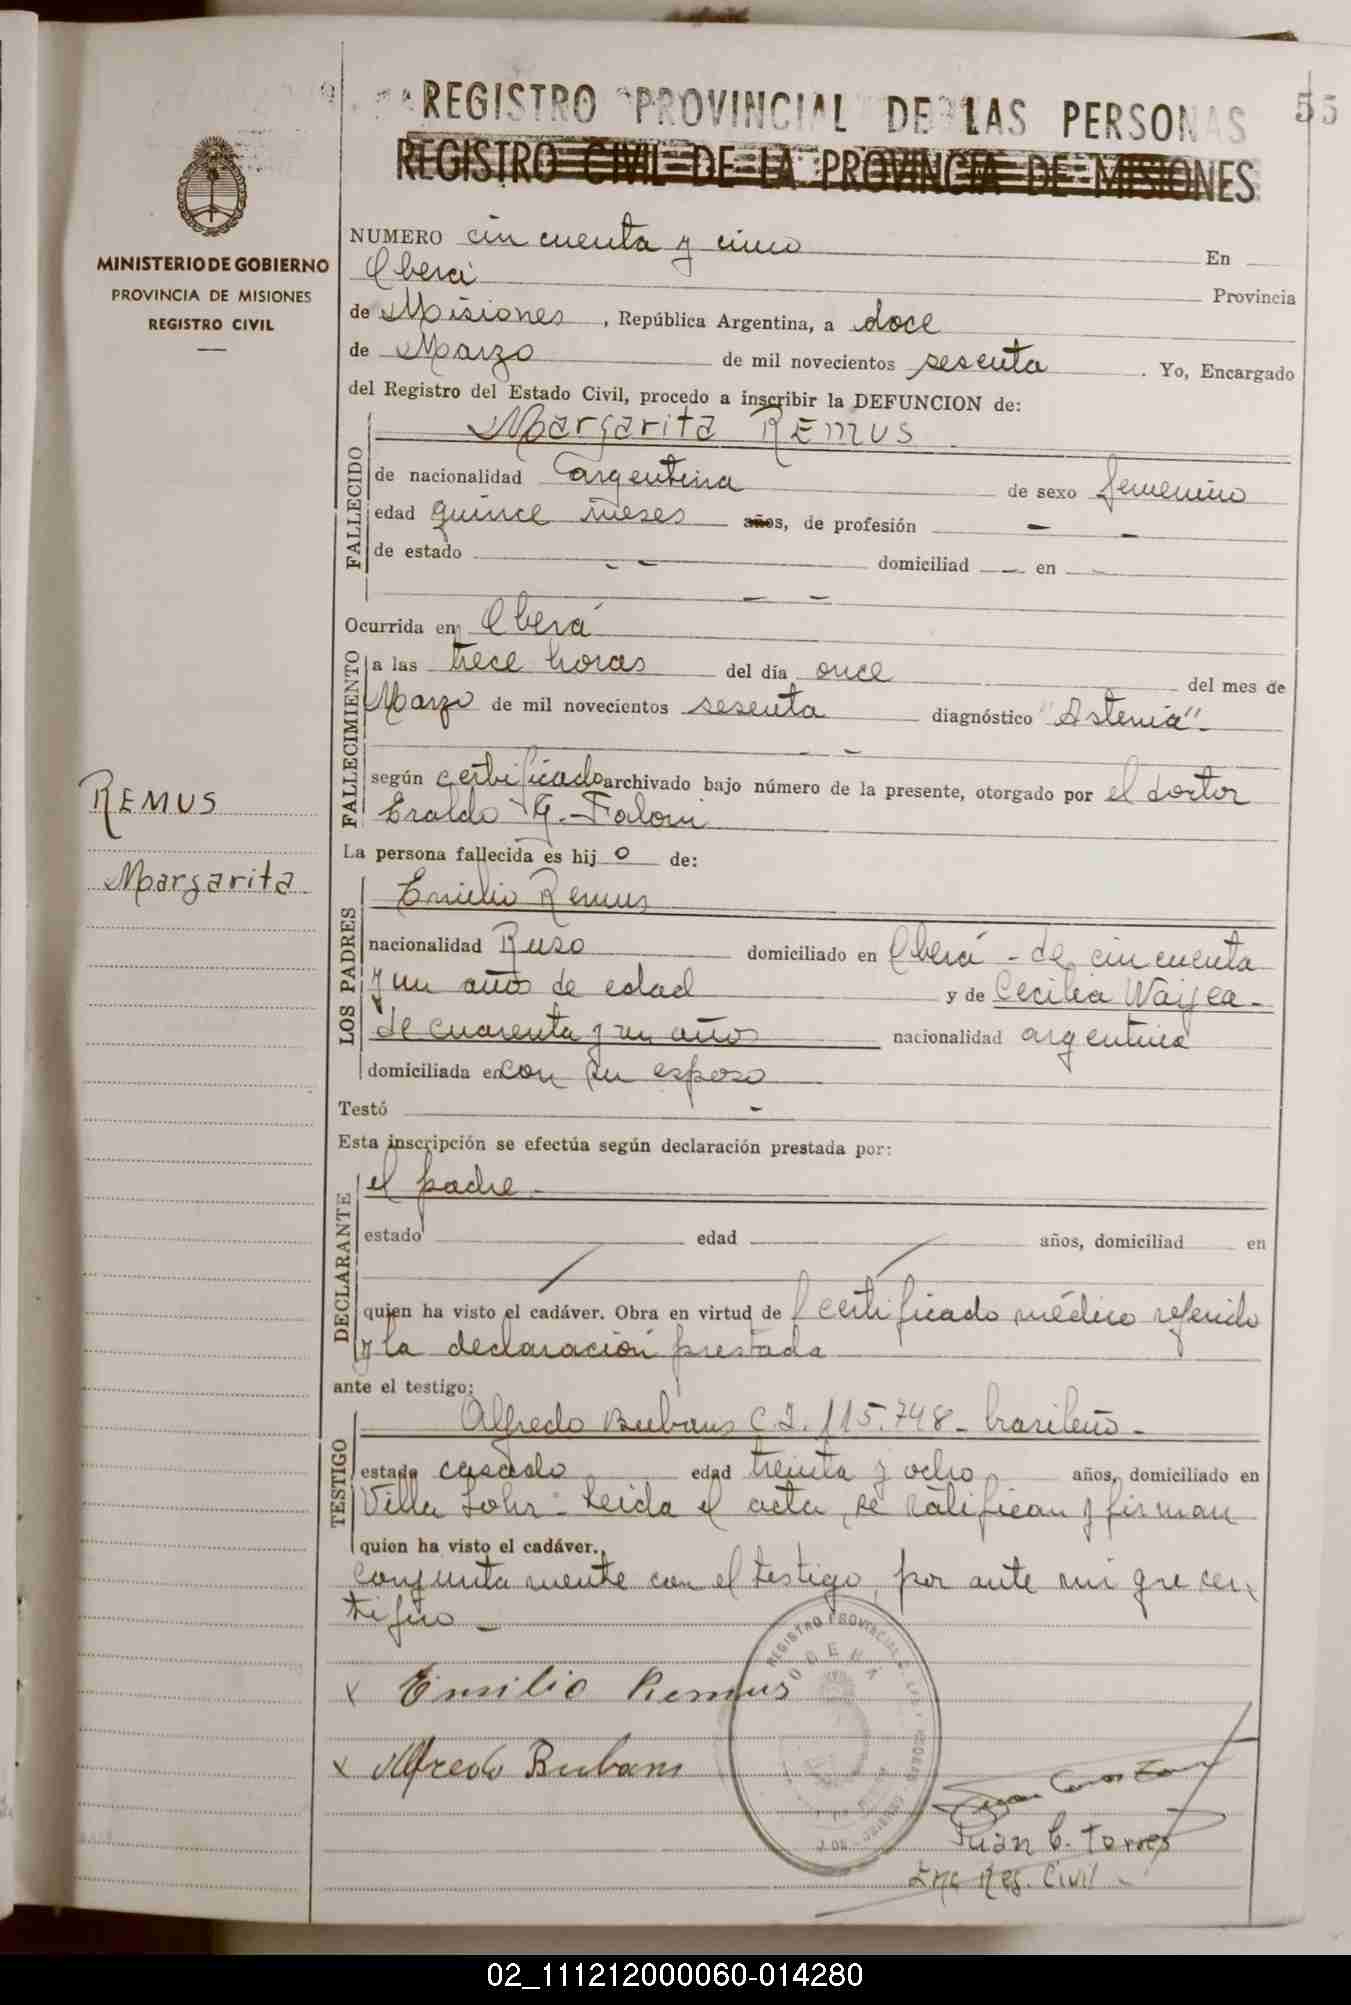 REGISTRO PROVINCIAL DE LAS PERSONAS
55
REGISTRO CIVIL DE LA PROVINCIA DE MISIONES
MINISTERIO DE GOBIERNO
PROVINCIA DE MISIONES
REGISTRO CIVIL
NUMERO cincuenta y cinco En
Oberá Provincia
de Misiones, República Argentina, a doce
de Marzo de mil novecientos sesenta. Yo, Encargado
del Registro del Estado Civil, procedo a inscribir la DEFUNCION de:
Margarita REMUS
FALLECIDO
de nacionalidad argentina de sexo femenino
edad quince meses años, de profesión - -
de estado - - domiciliad - en -
- -
Ocurrida en Oberá
FALLECIMIENTO
a las trece horas del día once del mes de
Marzo de mil novecientos sesenta diagnóstico "Astenia".-
- -
según certificado archivado bajo número de la presente, otorgado por el doctor
Eraldo G. Faloni
REMUS
Margarita
La persona fallecida es hij o de:
LOS PADRES
Emilio Remus
nacionalidad Ruso domiciliado en Oberá - de cincuenta
y un años de edad y de Cecilia -
de cuarenta y un años nacionalidad argentina
domiciliada en con su esposo
Testó -
Esta inscripción se efectúa según declaración prestada por:
DECLARANTE
el padre -
estado edad años, domiciliad en
quien ha visto el cadáver. Obra en virtud de certificado médico referido
y la declaración prestada
ante el testigo:
TESTIGO
Alfredo Bubans C.I. 115.748 - brasileño -
estado casado edad treinta y ocho años, domiciliado en
Villa Lohr - leida el acta, se ratifican y firman
quien ha visto el cadáver.
conjuntamente con el testigo, por ante mi que cer
tifico -
x Emilio Remus
x Alfredo Bubans
REGISTRO PROVINCIAL DE LAS PERSONAS
OBERÁ
Juan C. Torres
Enc Reg. Civil
02_111212000060-014280